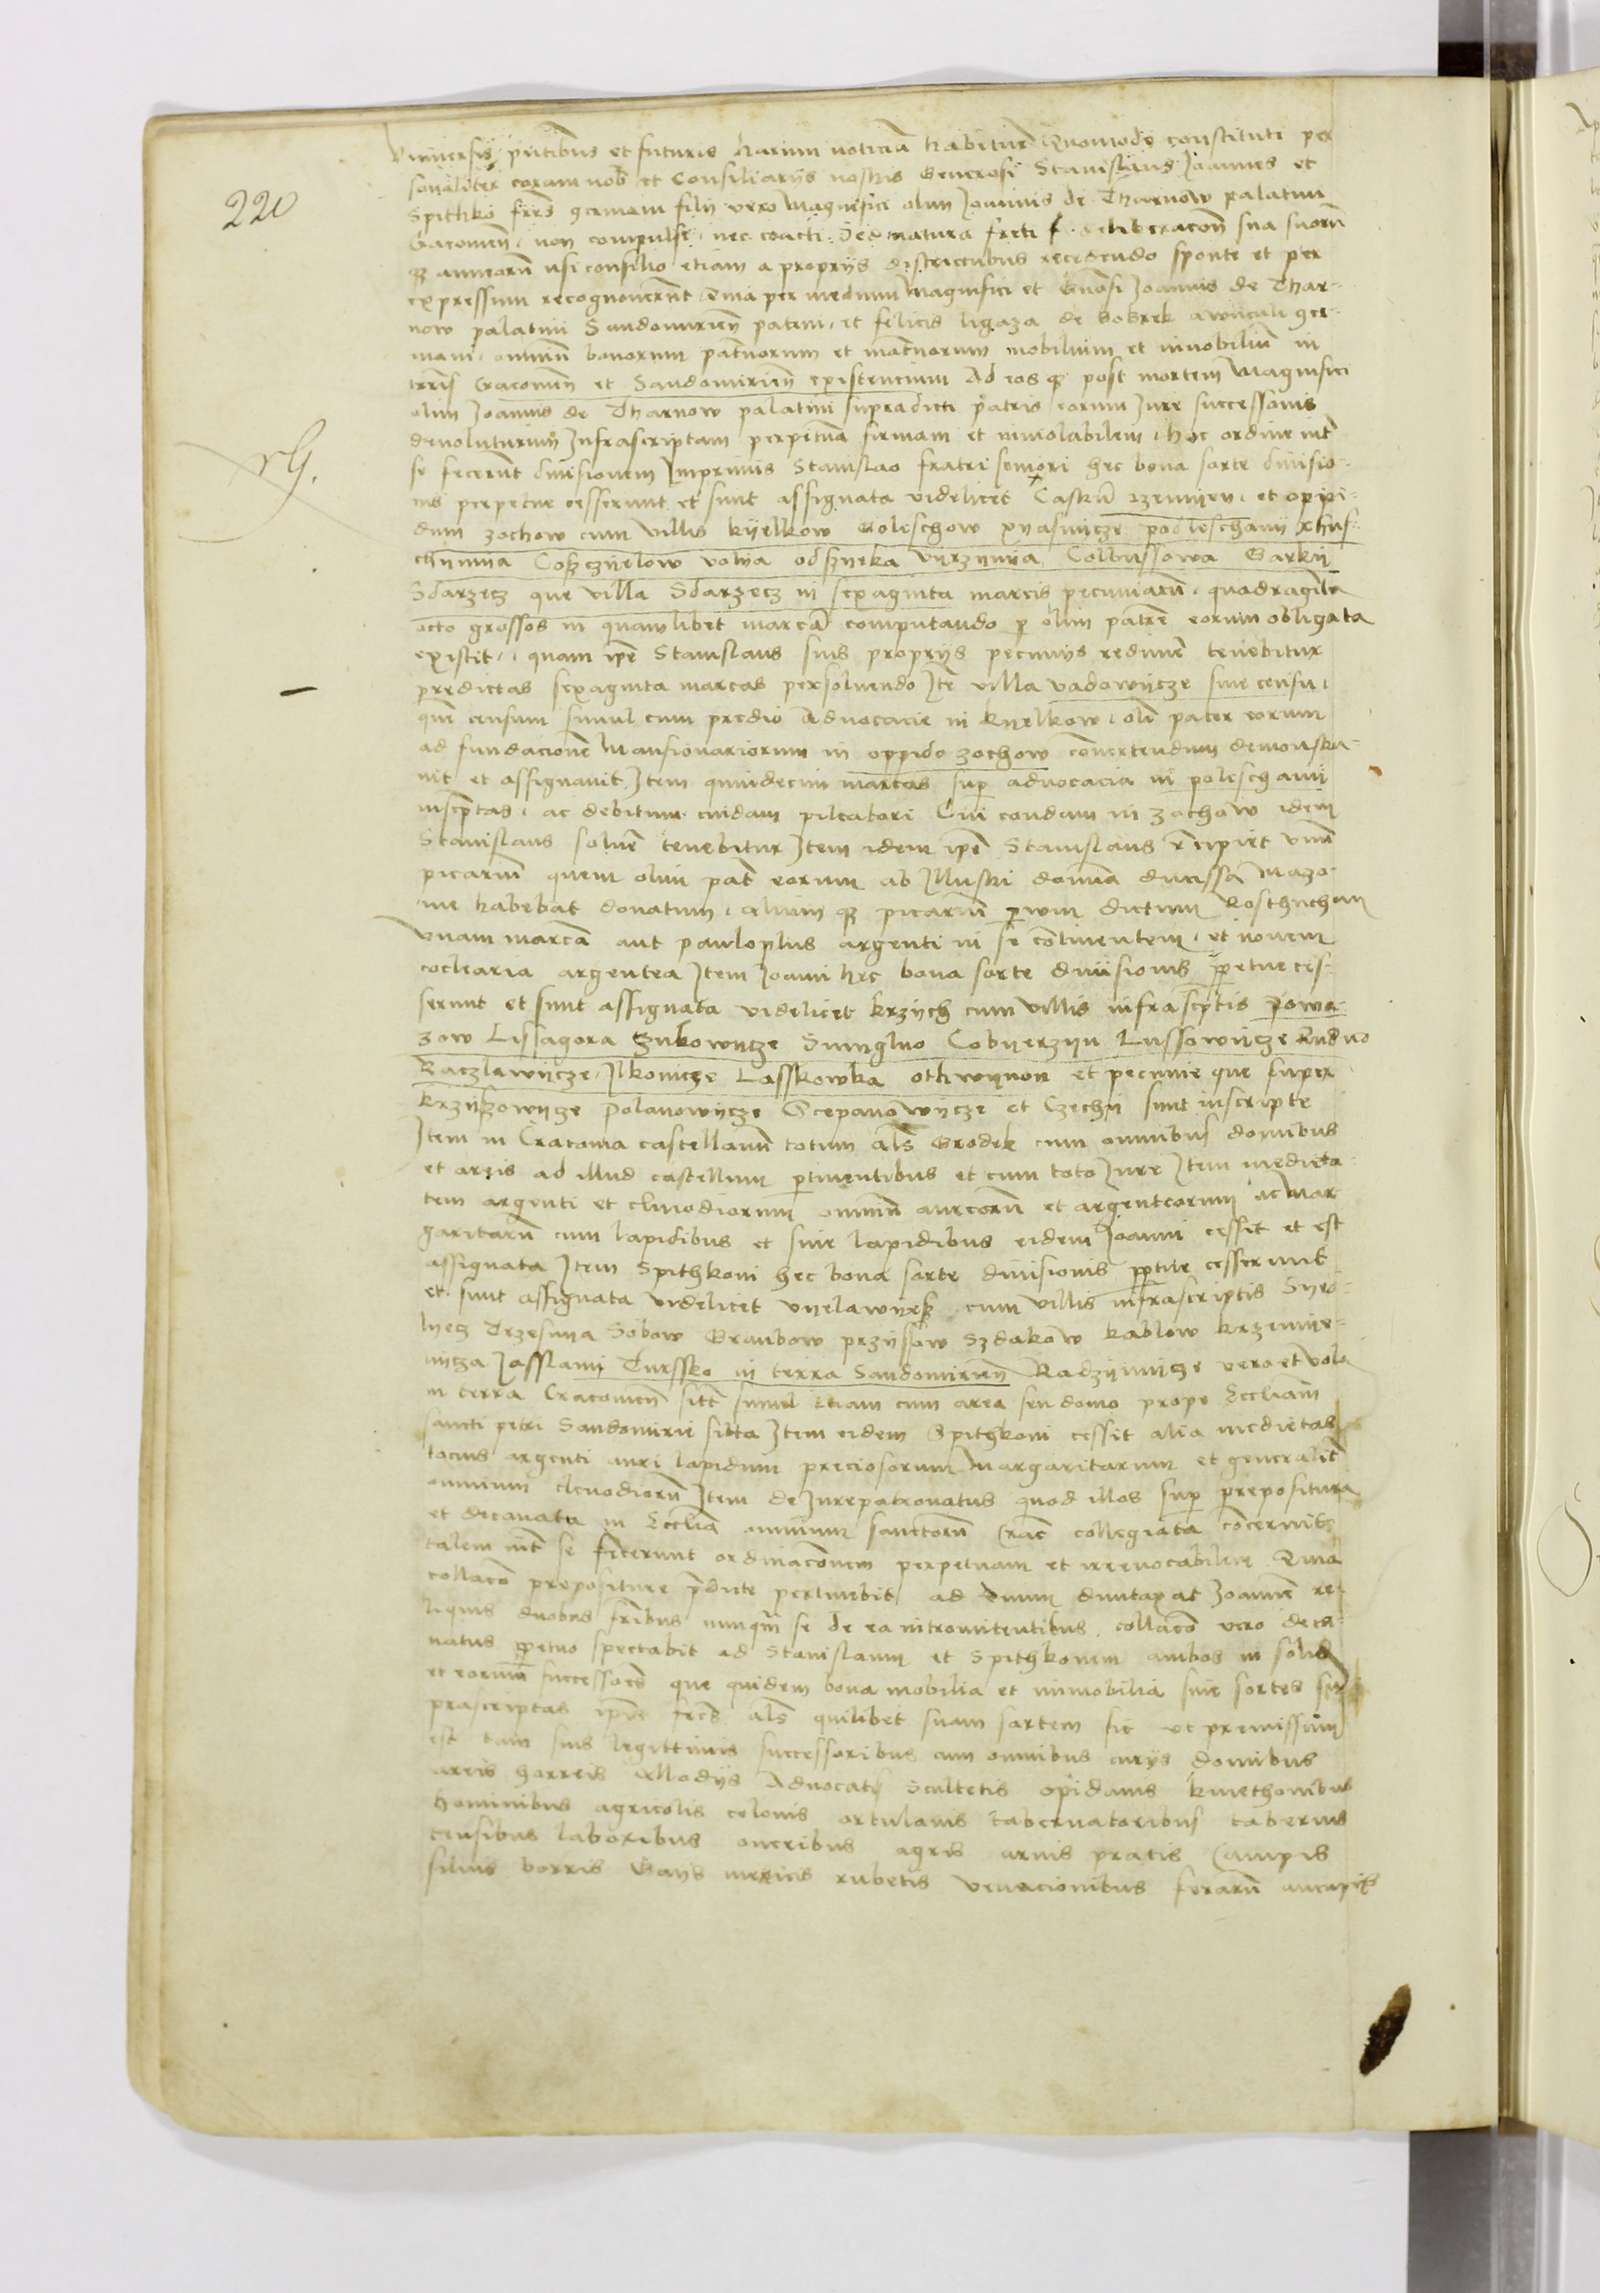 220
Universis pntibus et futuris harum noticia habitur Quomodo constituti per
sonaliter coram nob et Consiliarijs nostris Generosi Stanislaus Joannes et
Spithko frēs germani filij vero Magnifici olim Joannis de Tharnow palatini
Cracovien non compulsi nec coacti Sed matura freti deliberacon sua suorū
qz amicorū usi consilio etiam a proprijs districtubus recedendo sponte et per
expressum recognoverūt Quia per medium Magnifici et Gnosi Joannis de Thar-
now palatini Sandomirien patrui et felicis ligaza de Bobrek awnculi ger-
mani omniū bonorum pat'norum et mat'norum mobilium et inmobiliū in
terris Cracovien et Sandomirien existencium Ad eos qz post mortem Magnifici
olim Joannis de Tharnow palatini supradicti patris eorum Jure successionis
devoluturum Infrascriptam perpetuā firmam et inviolabilem hoc ordine int
se fecerūt divisionem Imprimis Stanislao fratri seniori hec bona sorte divisio-
nis perpetue cesserunt et sunt assignata videlicet Castrū rzemijen et opi-
dum zochow cum villis kijelkow Goleschow podleschanij Chus-
chnima vola odszneka Colbussowa Garkij
Sdarzecz que villa Sdarzecz in sexaginta marcis pecuniarū quadraginta
octo grossos in quamlibet marcā computando p olim patrē eorum obligata
existit quam ipē Stanislaus suis proprijs pecunijs redimē tenebitur
predictas sexaginta marcas persolvendo Itē villa vadowijcze sine censu
quē censum simul cum predio Advocacie in kijelkow oli pater eorum
ad fundacionē Mansionariorum in oppido zochow convertendum demonstra-
vit et assignavit Item quindecim marcas sup advocacia in poleschanij
inscptas ac debitum cuidam pileatori Civi condam in zochow idem
Stanislaus solvē tenebitur Item idem ipē Stanislaus recipiet unū
picariū quem olim pat eorum ab Illustri domina ducissa Mazo-
vie habebat donatum alium qz picariū parvum dictum Kosthuchan
Unam marcā aut paulo plus argenti in se cōtinentem et novem
coclearia argentea Item Joanni hec bona sorte divisionis ppetue ces-
serunt et sunt assignata videlicet krzijch cum villis infrascptis powa-
zow Lissagora zukowijcze Smyglno Cobijerzijn Lussowijcze Rudno
Raczlawijcze Ilkowicze Lasskowka othwijnon et pecunie que super
krzijzowijcze polanowijcze Scepanowijcze et Czechij sunt inscripte
Item in Cracovia castellanū totum als Grodek cum omnibus domibus
et areis ad illud castellum ptinentibus et cum toto Jure Item medieta-
tem argenti et clinodiorum omniū aureorū et argenteorum ac Mar
garitarū cum lapidibus et sine lapidibus eidem Joanni cessit et est
assignata Item Spithkoni hec bona sorte divisionis ppetue cesserunt
et sunt assignata videlicet vijelawijesz cum villis infrascriptis Syro-
lyecz Trzesnya Sobow Grambow przijssow Szdakow kablow krzemie-
nycza Jasslanij Turssko in terra Sandomirien Radzijmicze vero et vola
in terra Cracovien sitē simul etiam cum area seu domo prope Eccliam
sancti petri Sandomirie sitta Item eidem Spithkoni cessit alia medietas
tocius argenti auri lapidum preciosorum Margaritarum et generalit
omnium clenodiorū Item de Jurepatronatus quod illos sup prepositura
et decanatu in Ecclia omnium sanctorū Crac collegiata concernit
talem int se fecerunt ordinaconem perpetuam et irrevocabilem Quia
collacō prepositure pdicte pertinebit ad unum duntaxat Joannē re-
liquis duobus fribus nunqm se de ea intromittentibus collacō vero deca-
natus ppetuo spectabit ad Stanislaum et Spithkonem ambos in solid
et eorum successores que quidem bona mobilia et inmobilia sive sortes su
prascriptas ipsi frēs als quilibet suam sortem sic ut premissum
est tam suis legittimis successoribus cum omnibus curijs domibus
areis horreis allodijs Advocatijs Scultetis opidanis kmethonibus
hominibus agricolis colonis ortulanis tabernatoribus tabernis
censibus laboribus oneribus agris arvis pratis Campis
silvis borris Gays mericis rubetis venacionibus ferarū aucupijs